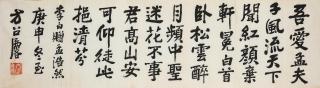 吾愛孟夫
子風流天下
聞紅顏棄
軒冕白首
臥松雲醉
月頻中聖
迷花不事
君高山安
可仰徒此
挹清芬
李白贈孟浩然
庚申冬
方